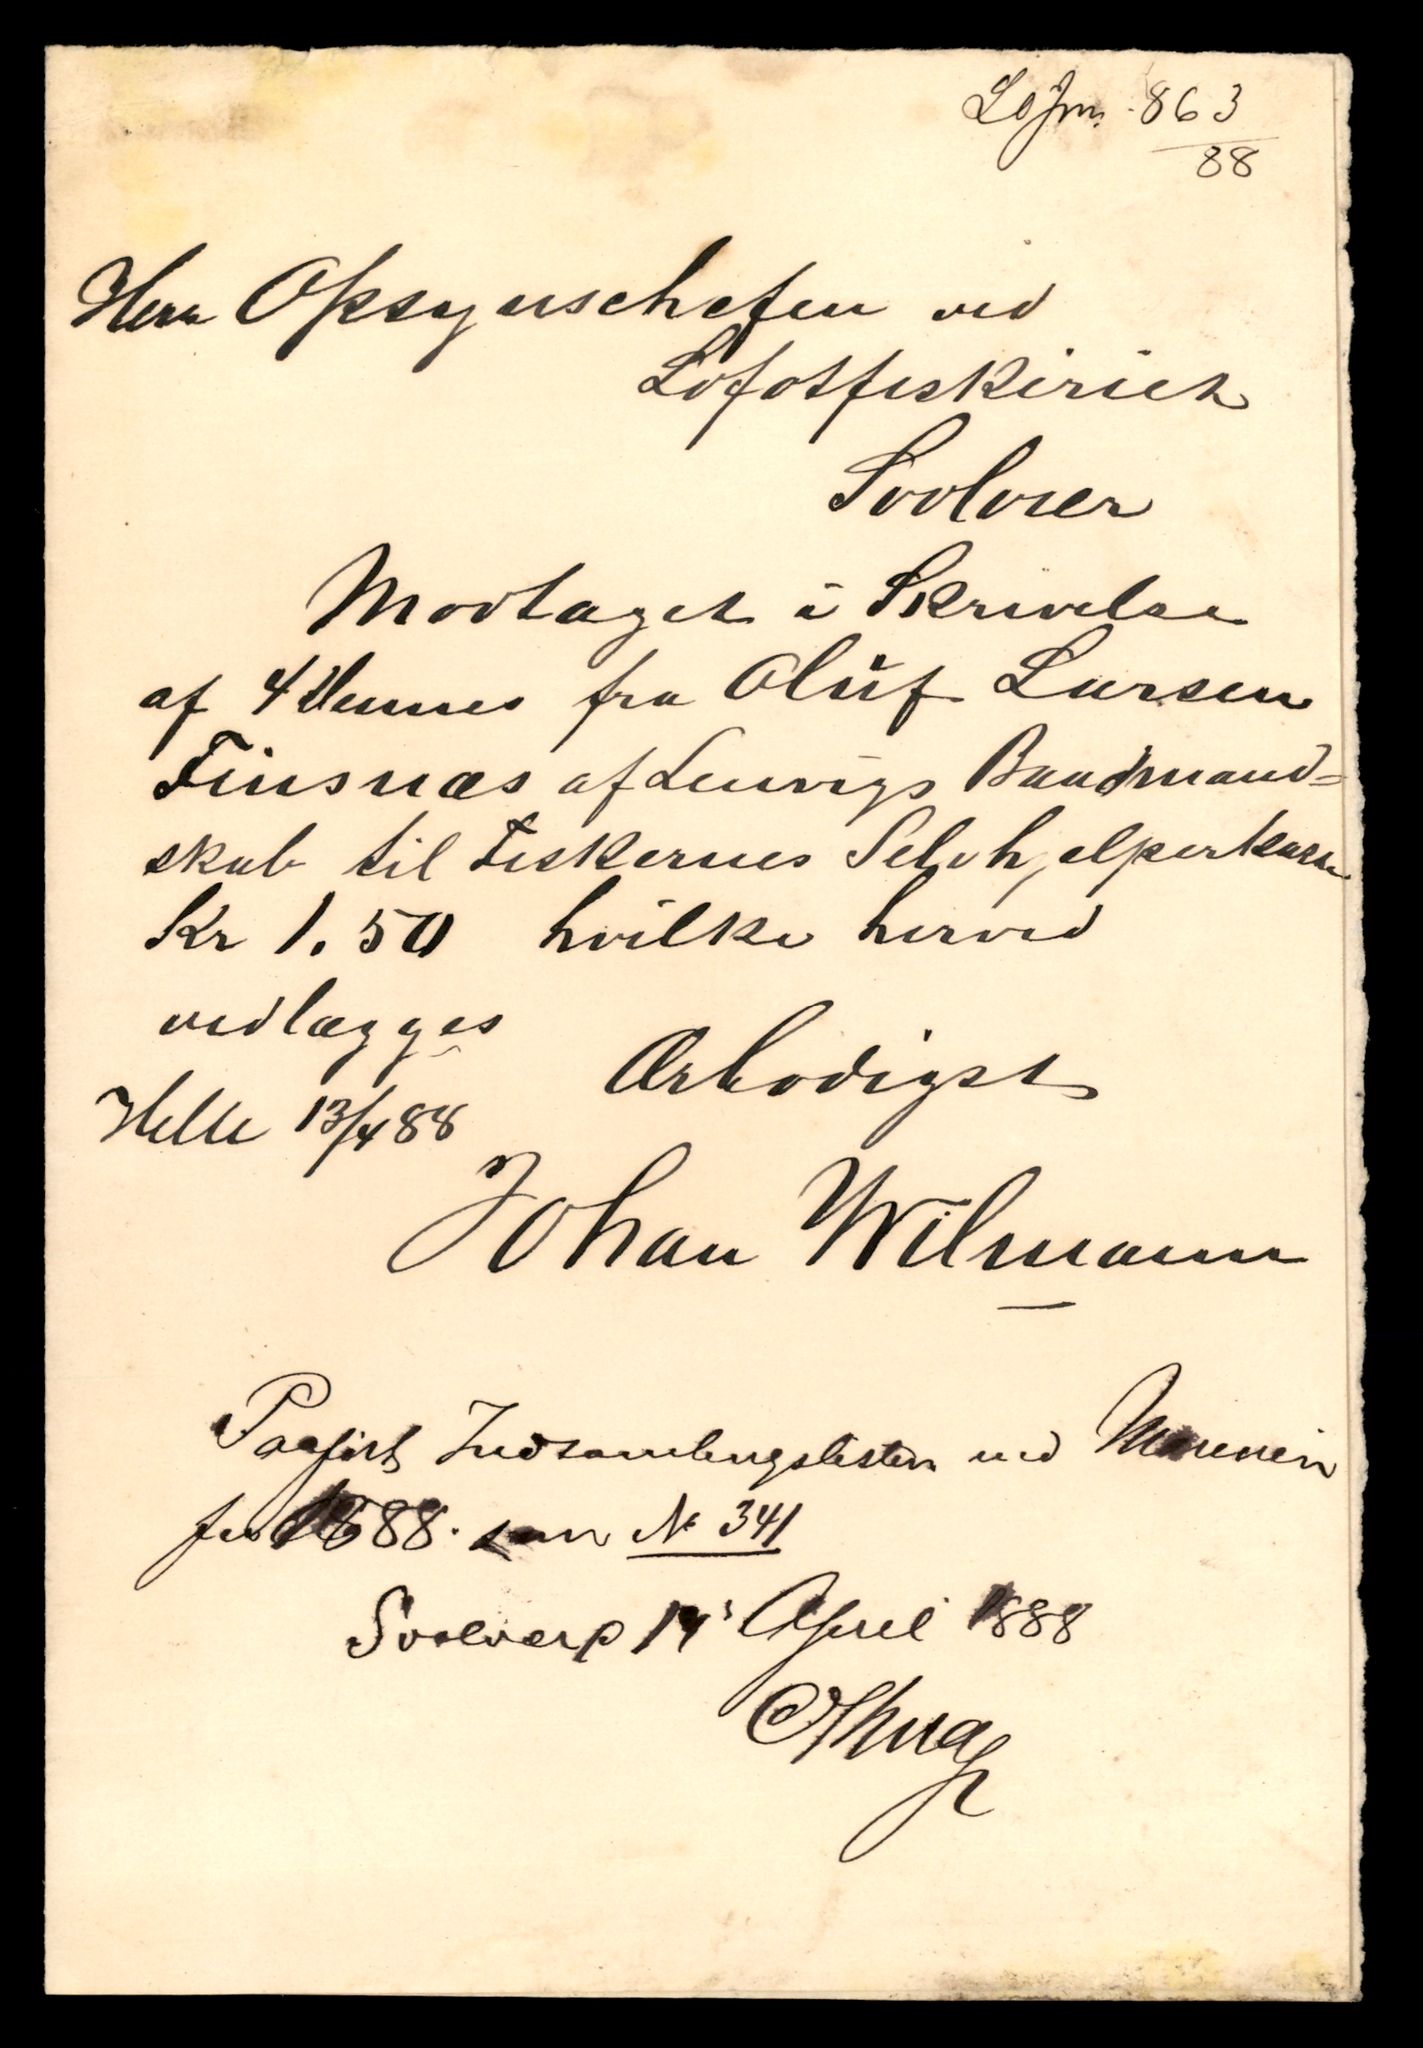 LoJrn. 863
88
Herr Opsynschefen ved
Lofotfiskeriet
Svolvær
Modtaget i Skrivelse
af 4 dennes fra Oluf Larsen
Finsnæs af Lenvigs Baadmand=
skab til Fiskernes Selvhjelperkasse
Kr 1.50 hvilke herved
vedlægges
Ærbødigst
Helle 13/4 88
Johan Wilmann
Paaført Indsamlingslisten ved
for 1888. som № 341
Svolvær 14' April 1888